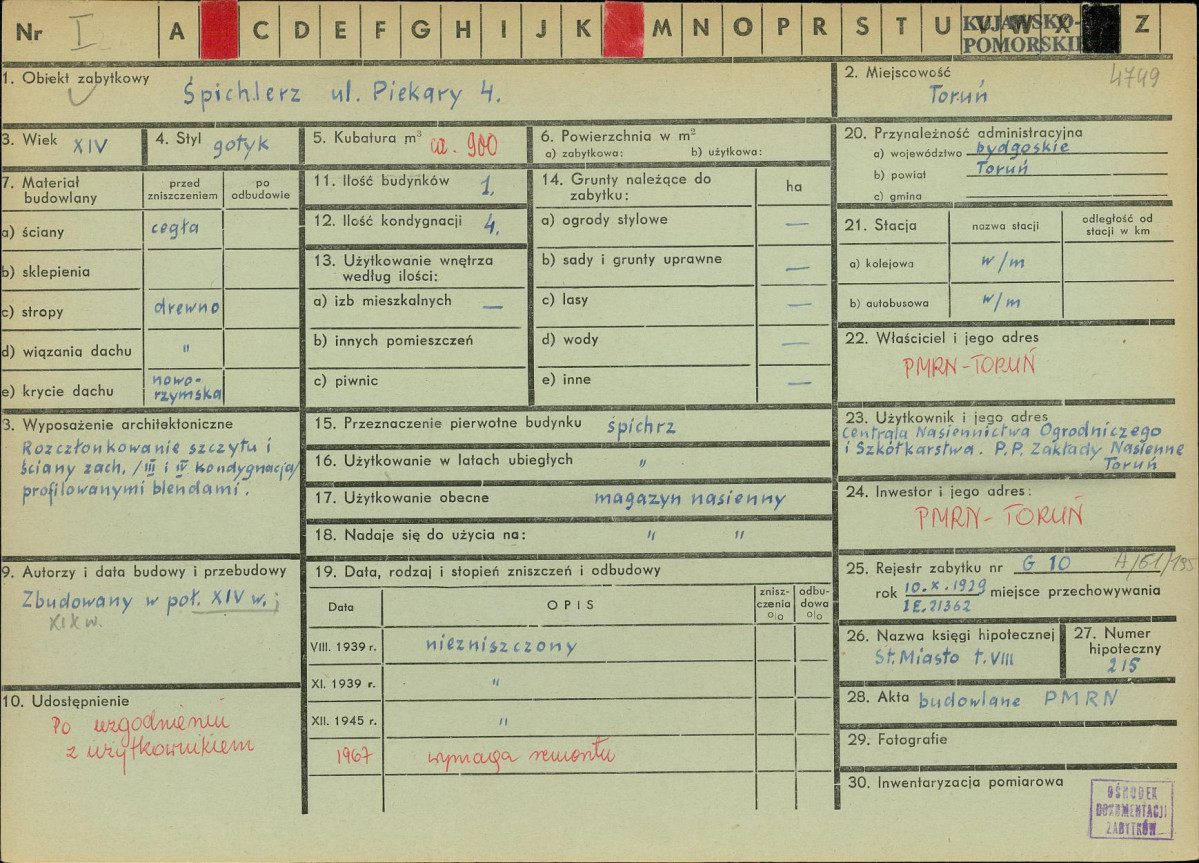 Nr I A C D E F G H I J K M N O P R S T U V W X Z
KUJAWSKO-
POMORSKIE
1. Obiekt zabytkowy
Śpichlerz ul. Piekary 4.
2. Miejscowość 4749
Toruń
3. Wiek XIV
4. Styl gotyk
5. Kubatura m³ ca. 900
6. Powierzchnia w m²
a) zabytkowa: b) użytkowa:
20. Przynależność administracyjna
a) województwo bydgoskie
b) powiat Toruń
c) gmina
7. Materiał budowlany
przed zniszczeniem
po odbudowie
a) ściany cegła
b) sklepienia
c) stropy drewno
d) wiązania dachu "
e) krycie dachu nowo-
rzymska
11. Ilość budynków 1.
12. Ilość kondygnacji 4.
13. Użytkowanie wnętrza
według ilości:
a) izb mieszkalnych —
b) innych pomieszczeń
c) piwnic
14. Grunty należące do
zabytku: ha
a) ogrody stylowe —
b) sady i grunty uprawne —
c) lasy —
d) wody —
e) inne —
21. Stacja
nazwa stacji
odległość od
stacji w km
a) kolejowa w/m
b) autobusowa w/m
22. Właściciel i jego adres
PMRN-TORUŃ
3. Wyposażenie architektoniczne
Rozczłonkowanie szczytu i
ściany zach. /III i IV kondygnacja/
profilowanymi blendami.
15. Przeznaczenie pierwotne budynku śpichrz
16. Użytkowanie w latach ubiegłych "
17. Użytkowanie obecne magazyn nasienny
18. Nadaje się do użycia na: " "
23. Użytkownik i jego adres
Centrala Nasiennictwa Ogrodniczego
i Szkółkarstwa. P.P. Zakłady Nasienne
Toruń
24. Inwestor i jego adres:
PMRN-TORUŃ
9. Autorzy i data budowy i przebudowy
Zbudowany w poł. XIV w. ;
XIX w.
19. Data, rodzaj i stopień zniszczeń i odbudowy
Data OPIS
znisz-
czenia
%
odbu-
dowa
%
VIII. 1939 r. niezniszczony
XI. 1939 r. "
XII. 1945 r. "
1967 wymaga remontu
25. Rejestr zabytku nr G 10 A/61/195
rok 10.X.1929 miejsce przechowywania
IE.21362
26. Nazwa księgi hipotecznej
St. Miasto t. VIII
27. Numer
hipoteczny
215
10. Udostępnienie
Po uzgodnieniu
z użytkownikiem
28. Akta budowlane PMRN
29. Fotografie
30. Inwentaryzacja pomiarowa
OŚRODEK
DOKUMENTACJI
ZABYTKÓW